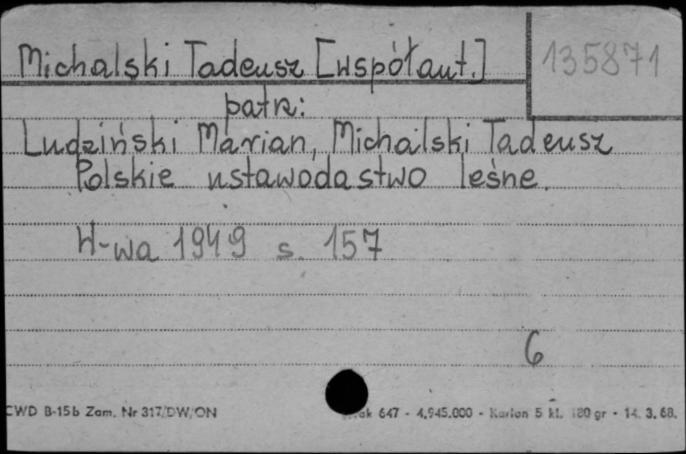 Michalski Tadeusz [współaut.]
135871
patrz:
Ludziński Marian, Michalski Tadeusz
Polskie ustawodastwo leśne.
W-wa 1949 s. 157
6
CWD B-15b Zam. Nr 317/DW/ON
647 - 4.945.000 - Karton 5 kl. 180 gr - 14. 3. 68.